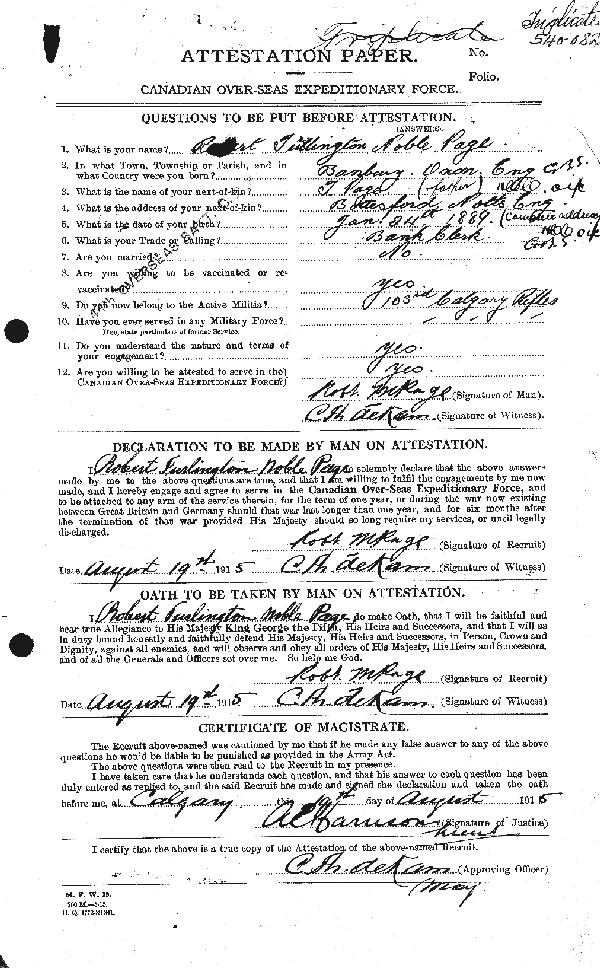 Triplicate
Triplicate
540-082
ATTESTATION PAPER.
No.
Folio.
CANADIAN OVER-SEAS EXPEDITIONARY FORCE.
QUESTIONS TO BE PUT BEFORE ATTESTATION.
(ANSWERS)
1. What is your name? Robert Turlington Noble Page
2. In what Town, Township or Parish, and in
what Country were you born? Banbury Oxon Eng
3. What is the name of your next-of-kin? T Page (father)
4. What is the address of your next-of-kin? Bottesford Notts Eng.
5. What is the date of your birth? Jan. 24th 1889 (Complete address
6. What is your Trade or Calling? Bank Clerk
7. Are you married? No
8. Are you willing to be vaccinated or re-
vaccinated? yes
9. Do you now belong to the Active Militia? 103rd Calgary Rifles
10. Have you ever served in any Military Force?
If so, state particulars of former Service.
11. Do you understand the nature and terms of
your engagement? yes.
12. Are you willing to be attested to serve in the
CANADIAN OVER-SEAS EXPEDITIONARY FORCE? yes.
(Signature of Man).
(Signature of Witness).
DECLARATION TO BE MADE BY MAN ON ATTESTATION.
I, Robert Turlington Noble Page, solemnly declare that the above answers
made by me to the above questions are true, and that I am willing to fulfil the engagements by me now
made, and I hereby engage and agree to serve in the Canadian Over-Seas Expeditionary Force, and
to be attached to any arm of the service therein, for the term of one year, or during the war now existing
between Great Britain and Germany should that war last longer than one year, and for six months after
the termination of that war provided His Majesty should so long require my services, or until legally
discharged.
(Signature of Recruit)
Date, August 19th 1915 (Signature of Witness)
OATH TO BE TAKEN BY MAN ON ATTESTATION.
I, Robert Turlington Noble Page, do make Oath, that I will be faithful and
bear true Allegiance to His Majesty King George the Fifth, His Heirs and Successors, and that I will as
in duty bound honestly and faithfully defend His Majesty, His Heirs and Successors, in Person, Crown and
Dignity, against all enemies, and will observe and obey all orders of His Majesty, His Heirs and Successors,
and of all the Generals and Officers set over me. So help me God.
(Signature of Recruit)
Date, August 19th 1915 (Signature of Witness)
CERTIFICATE OF MAGISTRATE.
The Recruit above-named was cautioned by me that if he made any false answer to any of the above
questions he would be liable to be punished as provided in the Army Act.
The above questions were then read to the Recruit in my presence.
I have taken care that he understands each question, and that his answer to each question has been
duly entered as replied to, and the said Recruit has made and signed the declaration and taken the oath
before me, at Calgary this 19th day of August 1915
(Signature of Justice)
I certify that the above is a true copy of the Attestation of the above-named Recruit.
(Approving Officer)
M. F. W. 23.